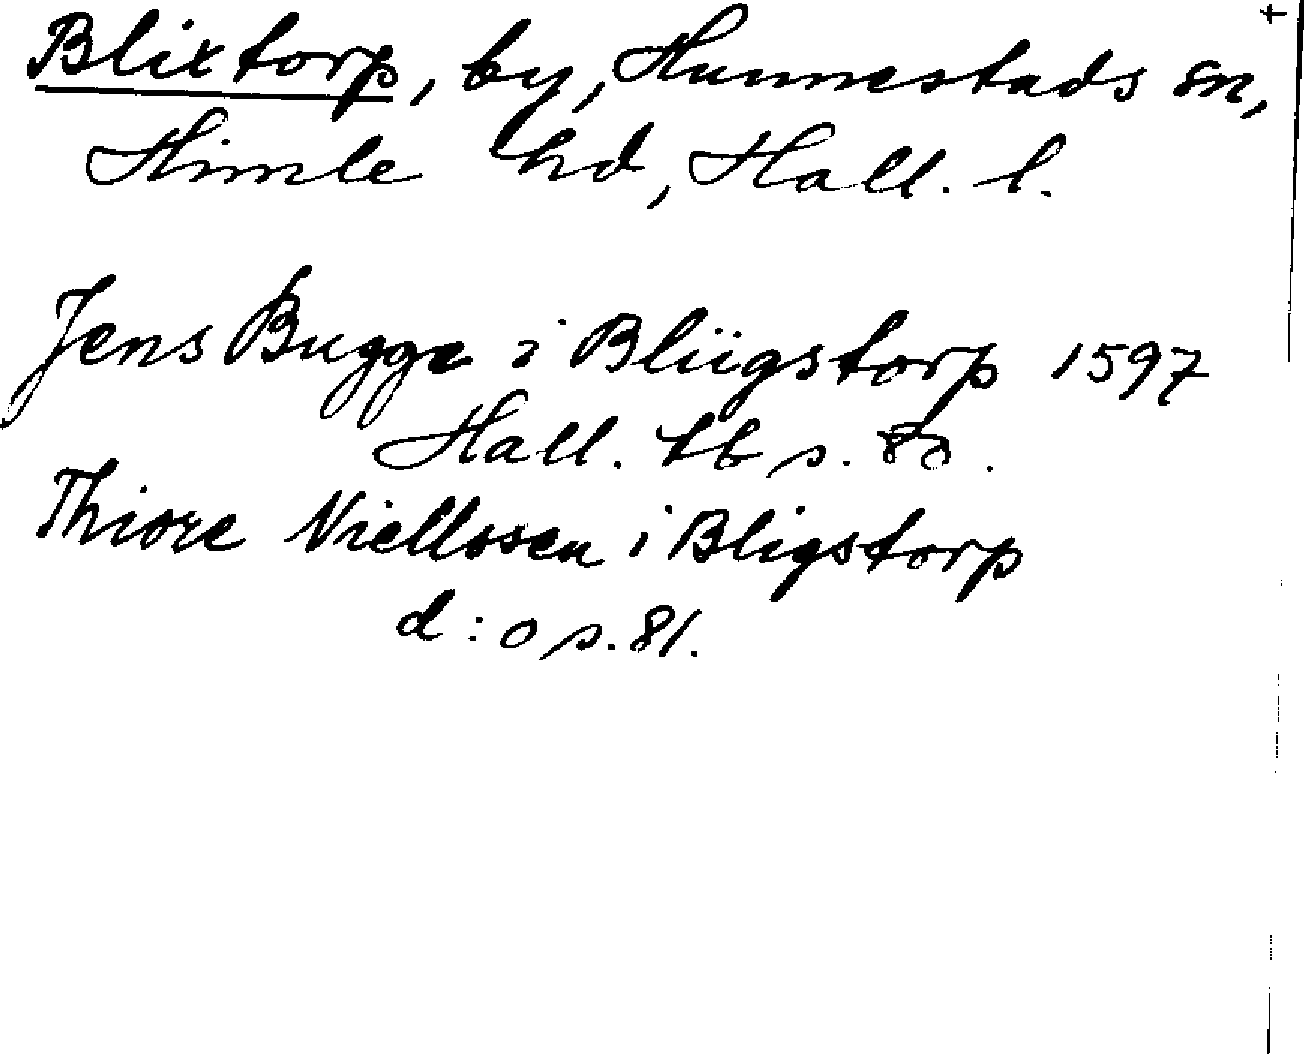 Blixtorp, by, Hunnestads sn,
Himle hd, Hall. l.
Jens Bugge i Bliigstorp 1597
Hall. tb s. 80.
Thiore Niellssen i Bligstorp
d:o s. 81.